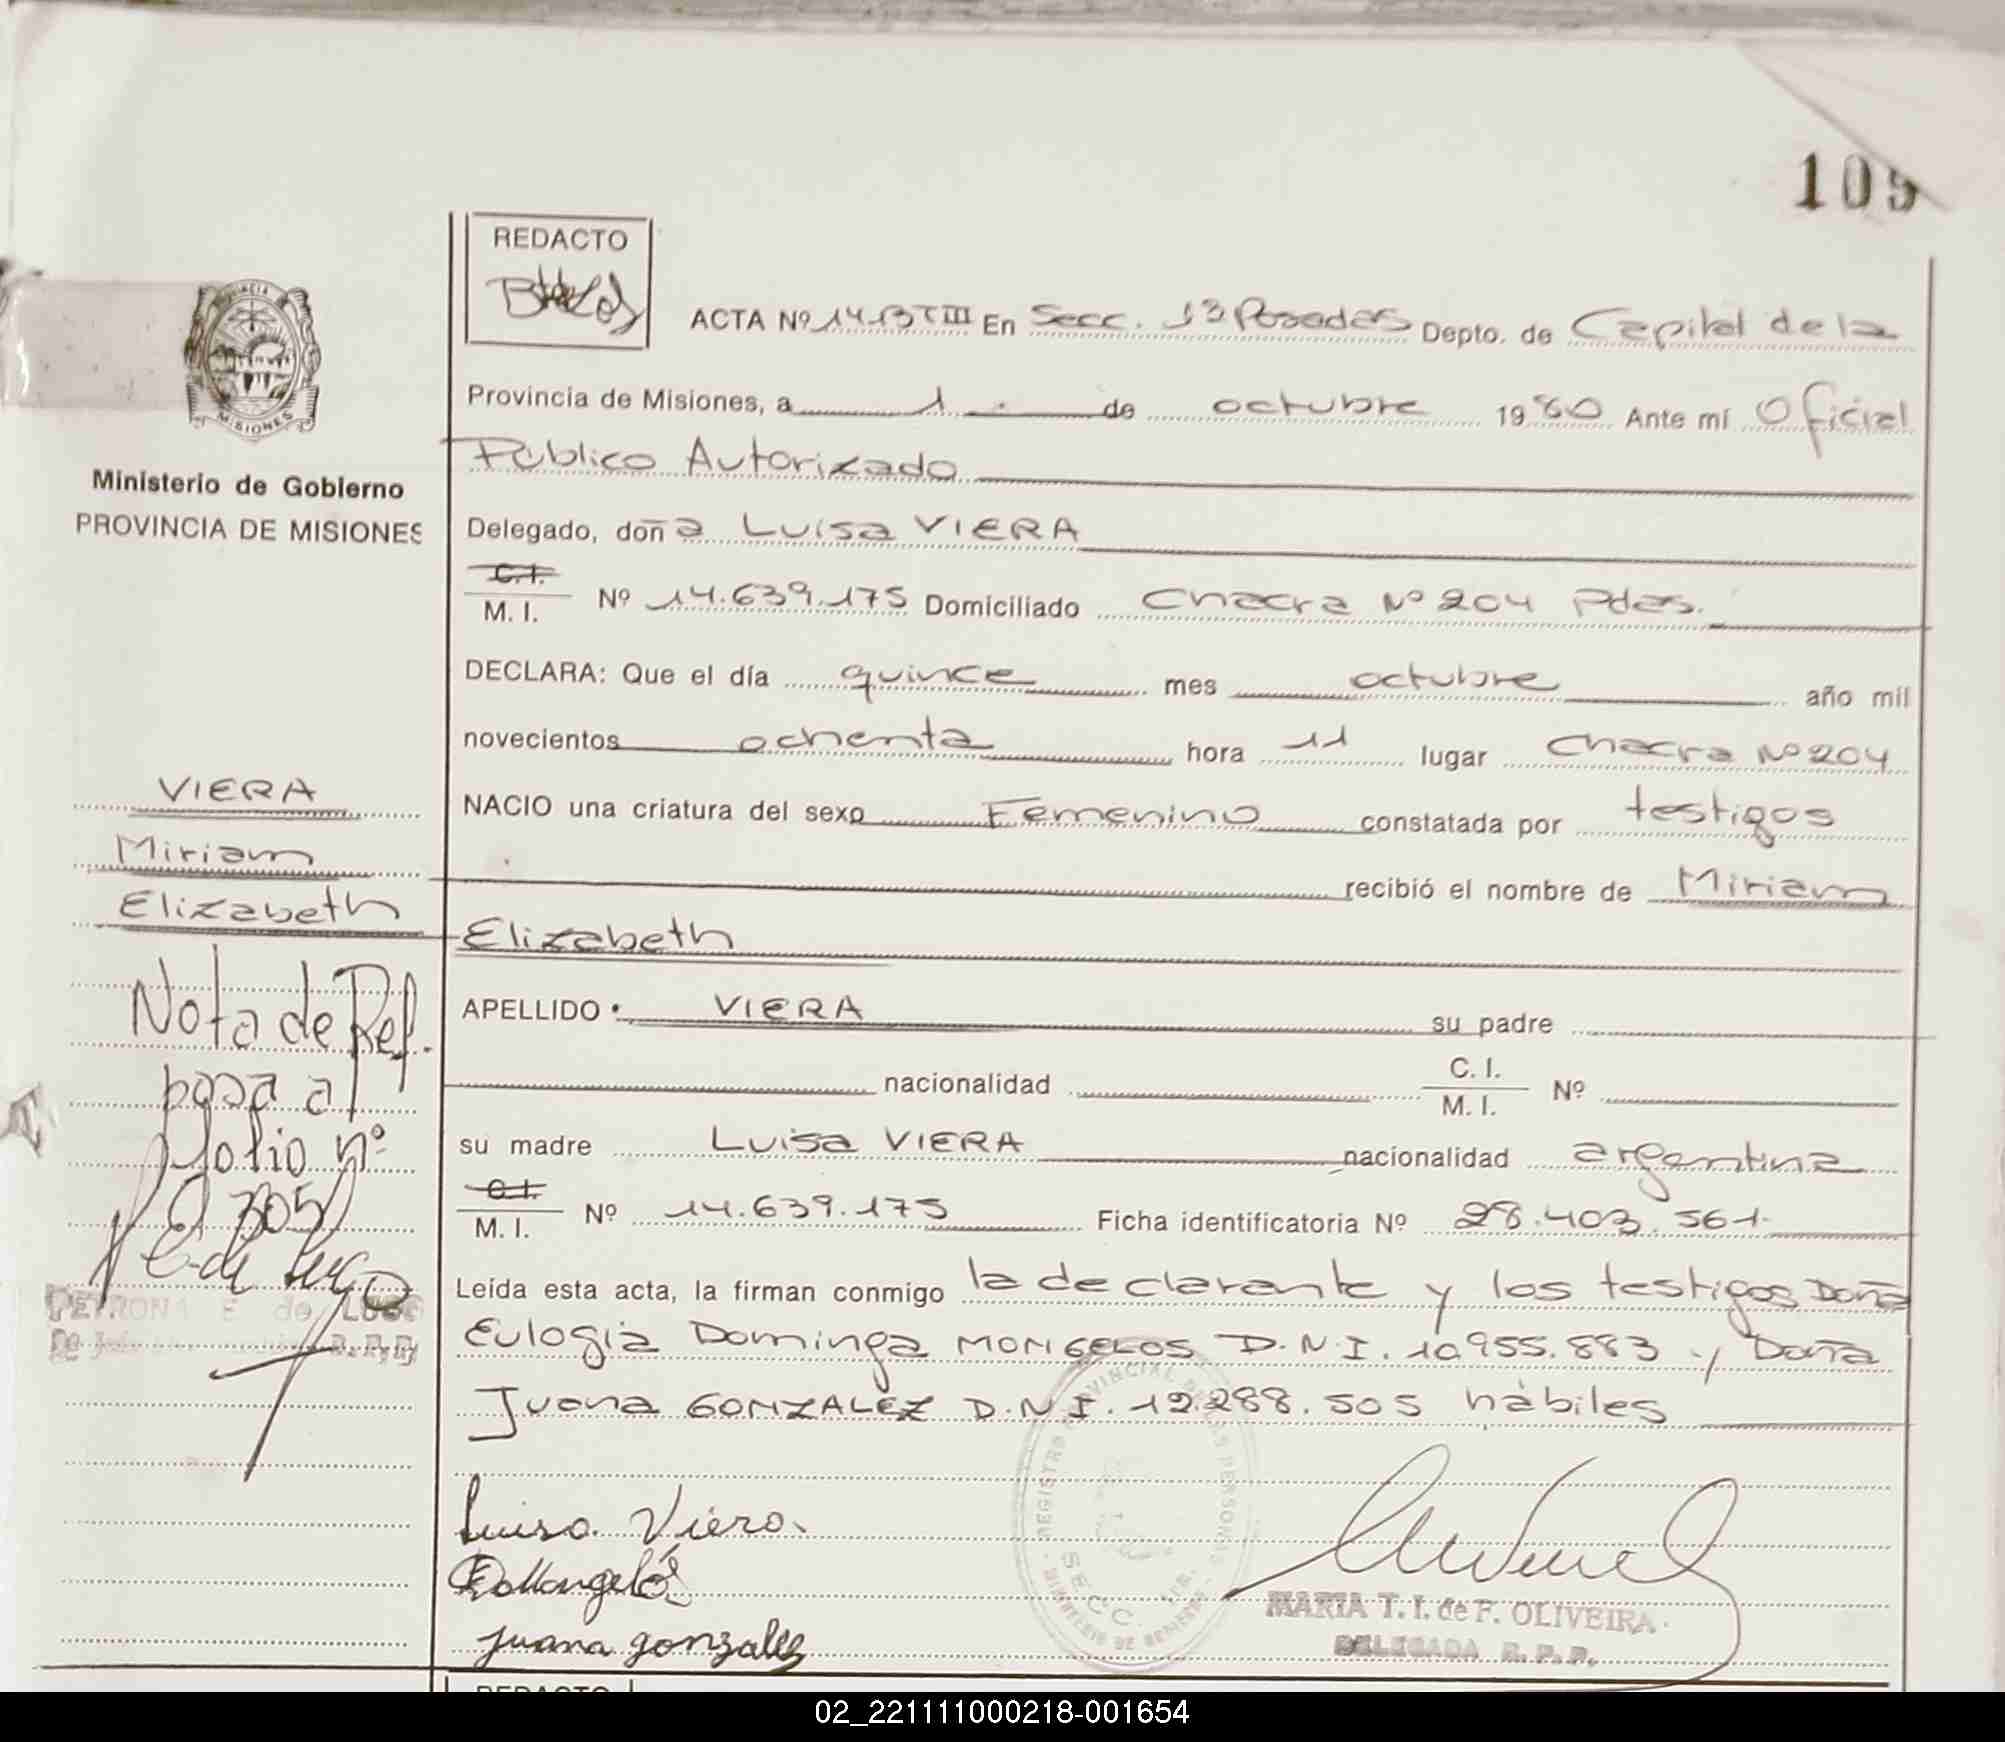 105
REDACTO
PROVINCIA
MISIONES
ACTA Nº 1413 T III En Secc. 1ª Posadas Depto. de Capital de la
Provincia de Misiones, a 1 de octubre 1980 Ante mí Oficial
Público Autorizado
Ministerio de Gobierno
PROVINCIA DE MISIONES
Delegado, doña Luisa VIERA
C.I.
M. I. Nº 14.639.175 Domiciliado Chacra Nº 204 Pdas.
DECLARA: Que el día quince mes octubre año mil
novecientos ochenta hora 11 lugar Chacra Nº 204
NACIO una criatura del sexo Femenino constatada por testigos
recibió el nombre de Miriam
Elizabeth
APELLIDO VIERA su padre
nacionalidad C. I.
M. I. Nº
su madre Luisa VIERA nacionalidad argentina
C.I.
M. I. Nº 14.639.175 Ficha identificatoria Nº 28.403.561.
Leída esta acta, la firman conmigo la declarante y los testigos Doña
Eulogia Dominga MONGELOS D.N.I. 10.955.883 y Doña
Juana GONZALEZ D.N.I. 12.288.505 hábiles
VIERA
Miriam
Elizabeth
Nota de Ref.
pasa al
folio nº
305
PETRONA E de LUGO
R.P.P.
Luisa Viera
E D Mongelós
Juana gonzalez
REGISTRO PROVINCIAL DE LAS PERSONAS
SECC. 1ra.
MARIA T. I. de F. OLIVEIRA
DELEGADA R. P. P.
REDACTO
02_221111000218-001654